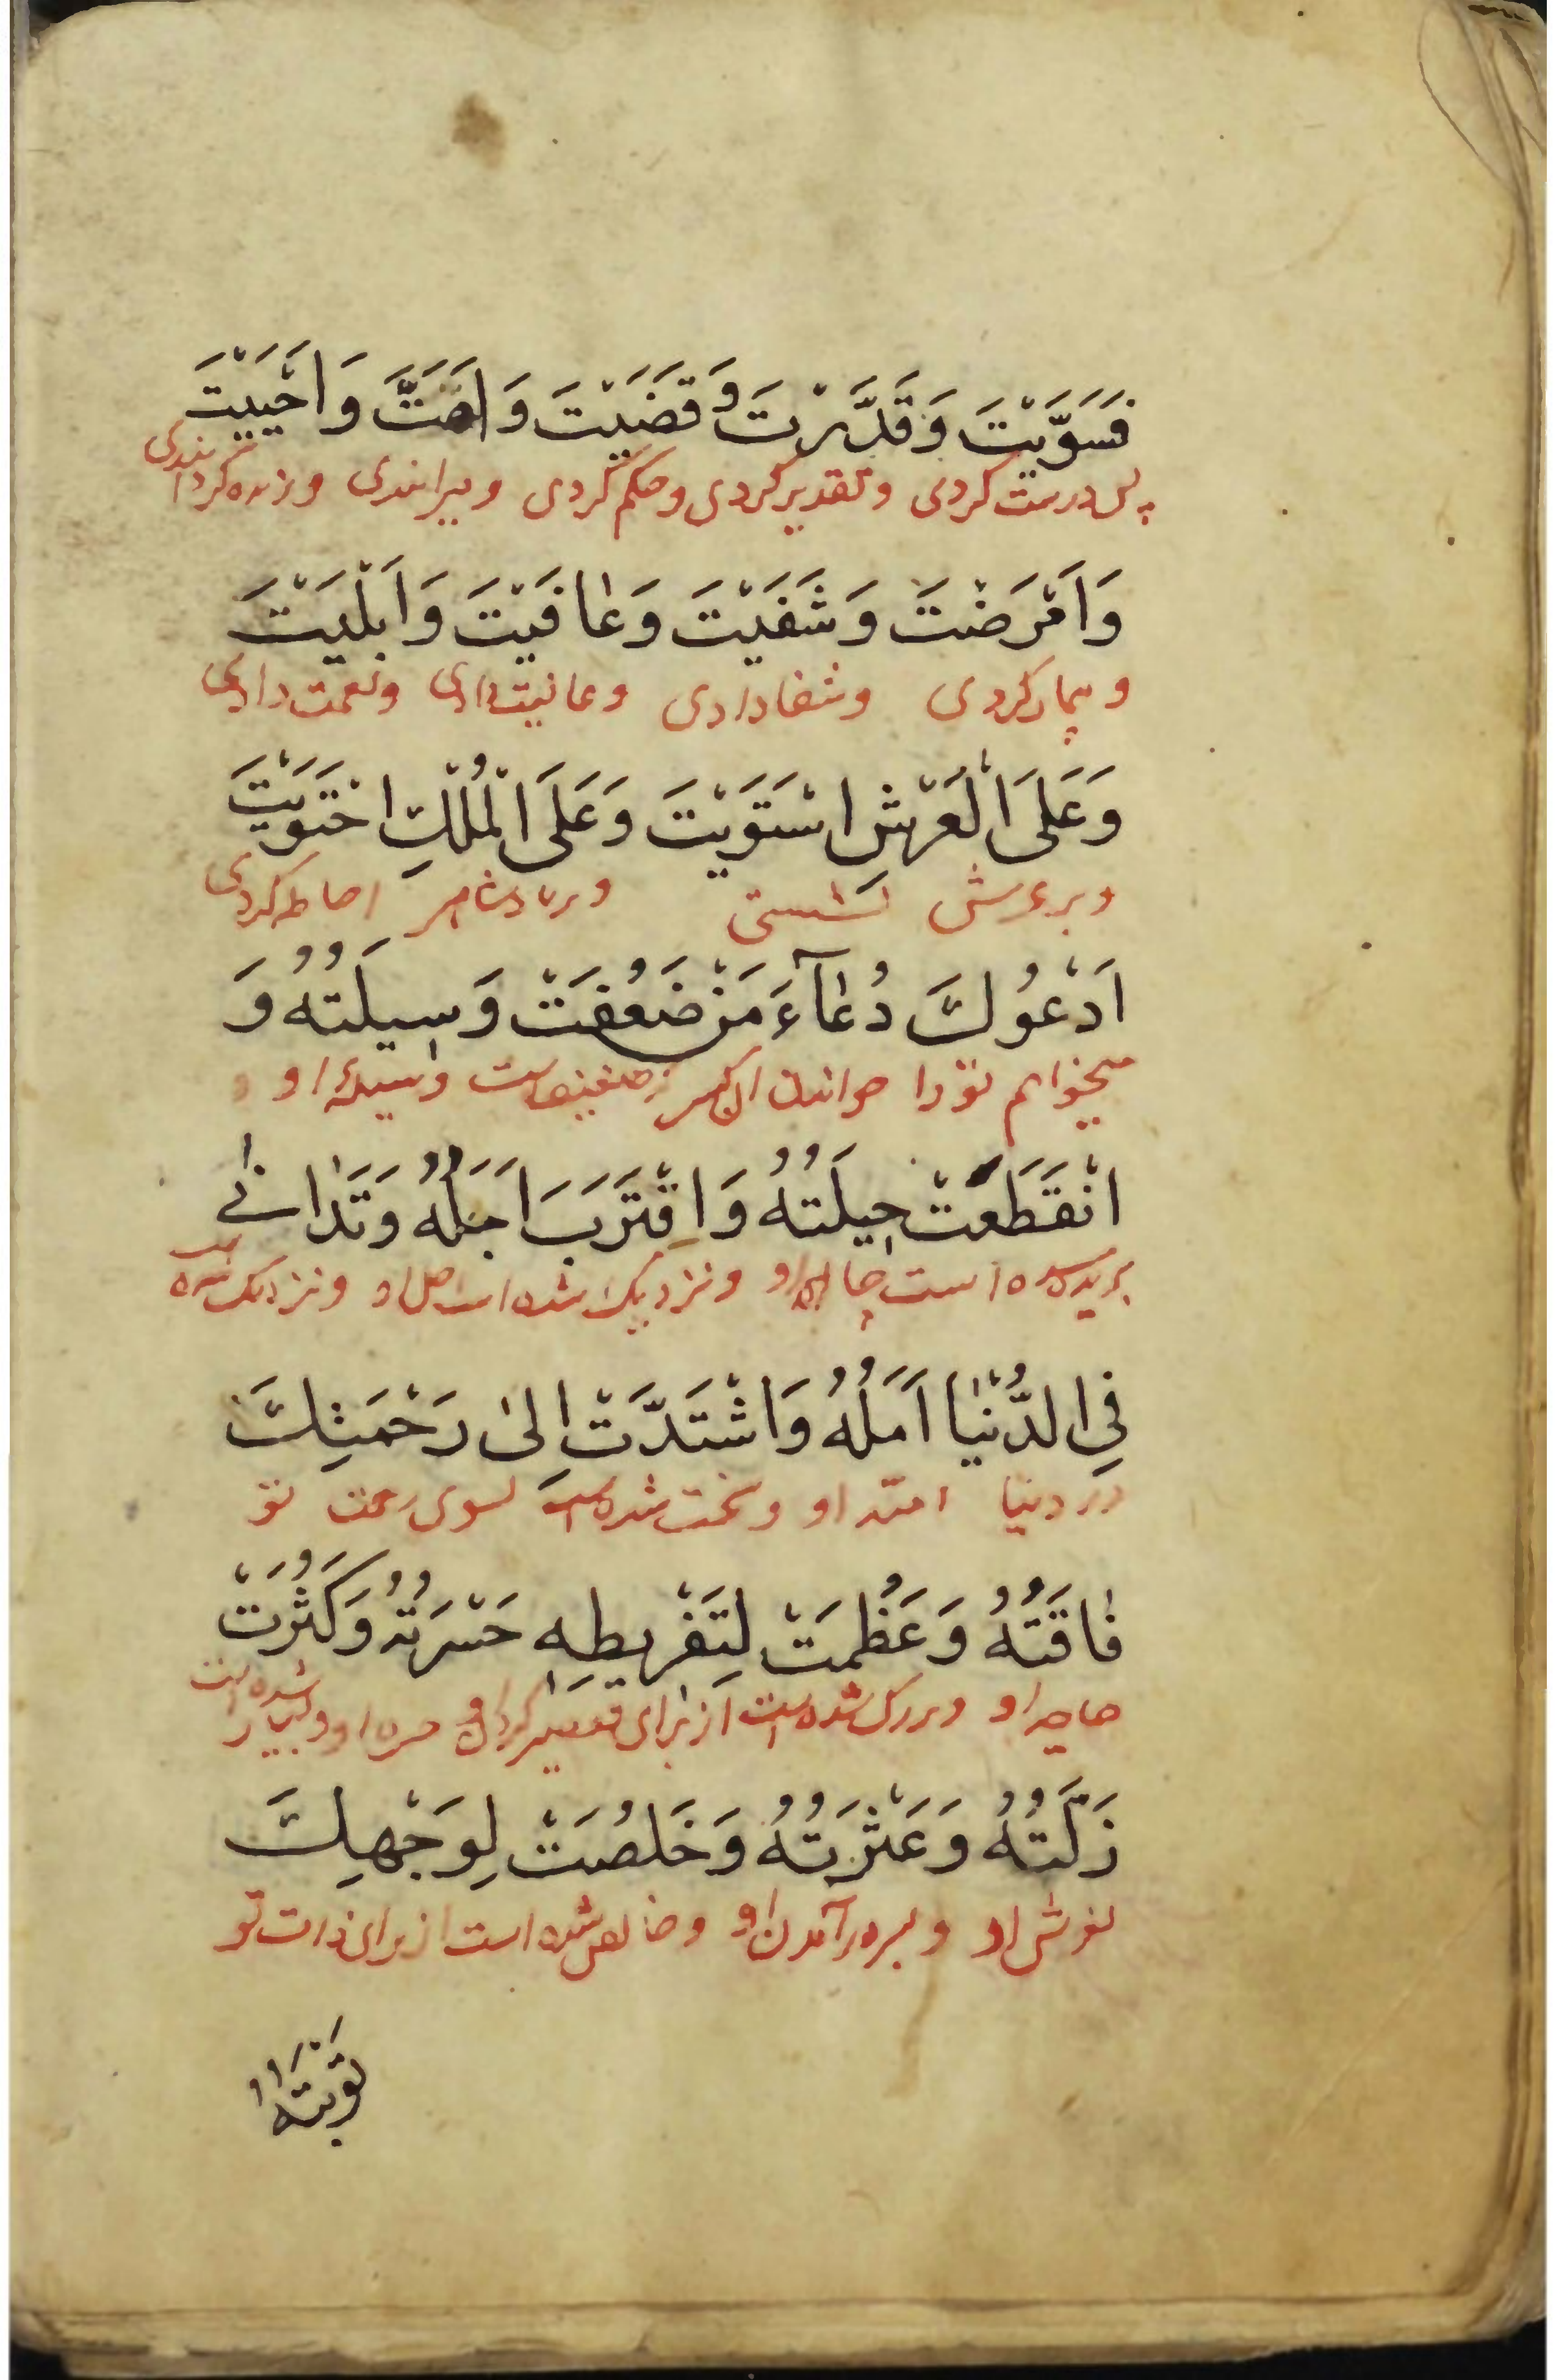 فَسَوَّيْتَ وَقَدَّرْتَ وَقَضَيْتَ وَاَمَتَّ وَاَحْيَيْتَ
پس درست کردی و تقدیر کردی و حکم کردی و میراندی و زنده گردانیدی
وَاَمْرَضْتَ وَشَفَيْتَ وَعٰافَيْتَ وَاَبْلَيْتَ
و بیمار کردی و شفا دادی و عافیت دادی و نعمت دادی
وَعَلَى الْعَرْشِ اسْتَوَيْتَ وَعَلَى الْمُلْكِ احْتَوَيْتَ
و بر عرش نشستی و بر پادشاهی احاطه کردی
اَدْعُوكَ دُعٰآءَ مَنْ ضَعُفَتْ وَسِيلَتُهُ وَ
میخوانم تو را خواندن آن کس که ضعیف است وسیلهٔ او و
انْقَطَعَتْ حِيلَتُهُ وَاِقْتَرَبَ اَجَلُهُ وَتَدٰانىٰ
بریده شده است چاره او و نزدیک شده است اجل او و نزدیک شده است
فِي الدُّنْيٰا اَمَلُهُ وَاشْتَدَّتْ اِلىٰ رَحْمَتِكَ
در دنیا امید او و سخت شده است بسوی رحمت تو
فٰاقَتُهُ وَعَظُمَتْ لِتَفْرِيطِهِ حَسْرَتُهُ وَكَثُرَتْ
حاجت او و بزرک شده است از برای تقصیر کردن او حسرت او و بسیار شده است
زَلَّتُهُ وَعَثْرَتُهُ وَخَلُصَتْ لِوَجْهِكَ
لغزش او و بسر درآمدن او و خالص شده است از برای ذات تو
تَوْبَتُهُ